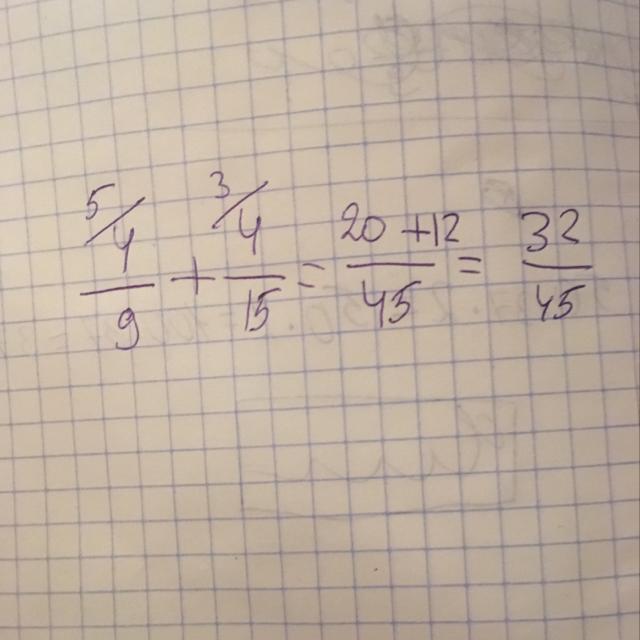 5/4/9 + 3/4/15 = 20+12/45 = 32/45